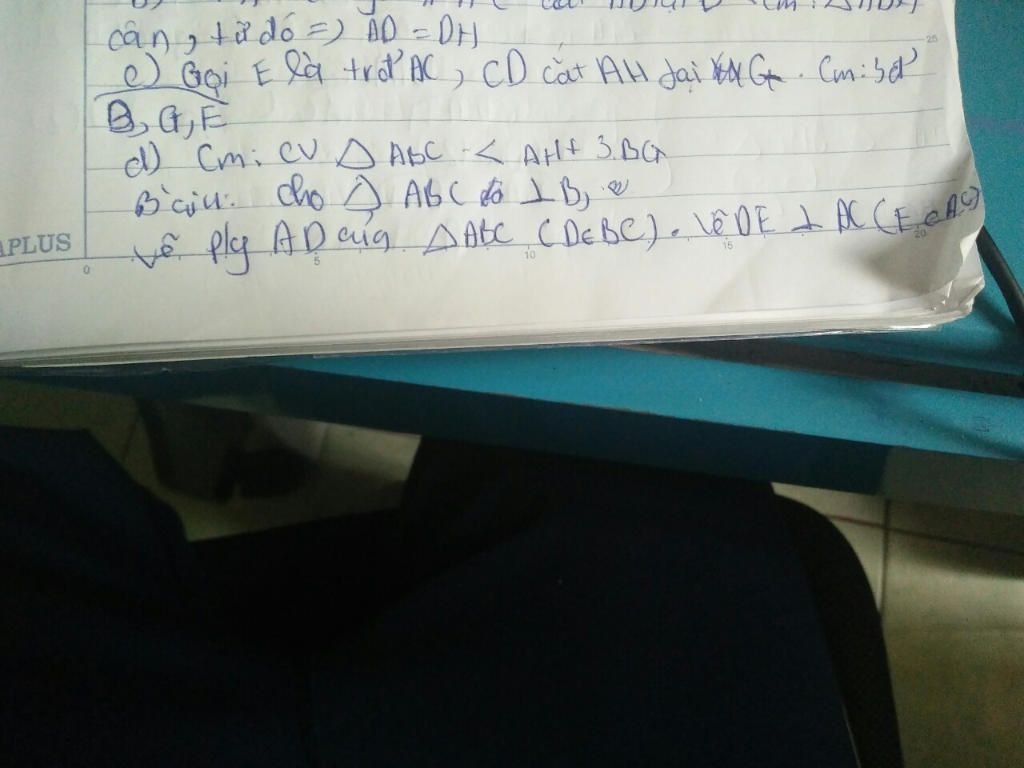 cân, từ đó => AD = DH
c) Gọi E là trđ' AC, CD cắt AH tại G. Cm: 3 đ'
B, G, E
d) Cm: CV △ ABC < AH + 3.BG
Cho △ ABC ⊥ B,
Vẽ p/g AD của △ABC (D∈BC). Vẽ DE ⊥ AC (E ∈ AC)
APLUS
0 5 10 15 20
25